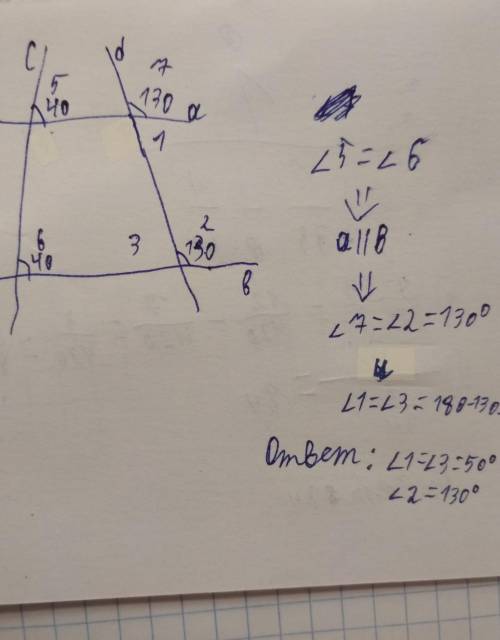 c d
5 7
40 130 a
1
6 3 2
40 130
в
∠5=∠6
⇓
a||в
⇓
∠7=∠2=130°
и
∠1=∠3=180-130
Ответ: ∠1=∠3=50°
∠2=130°